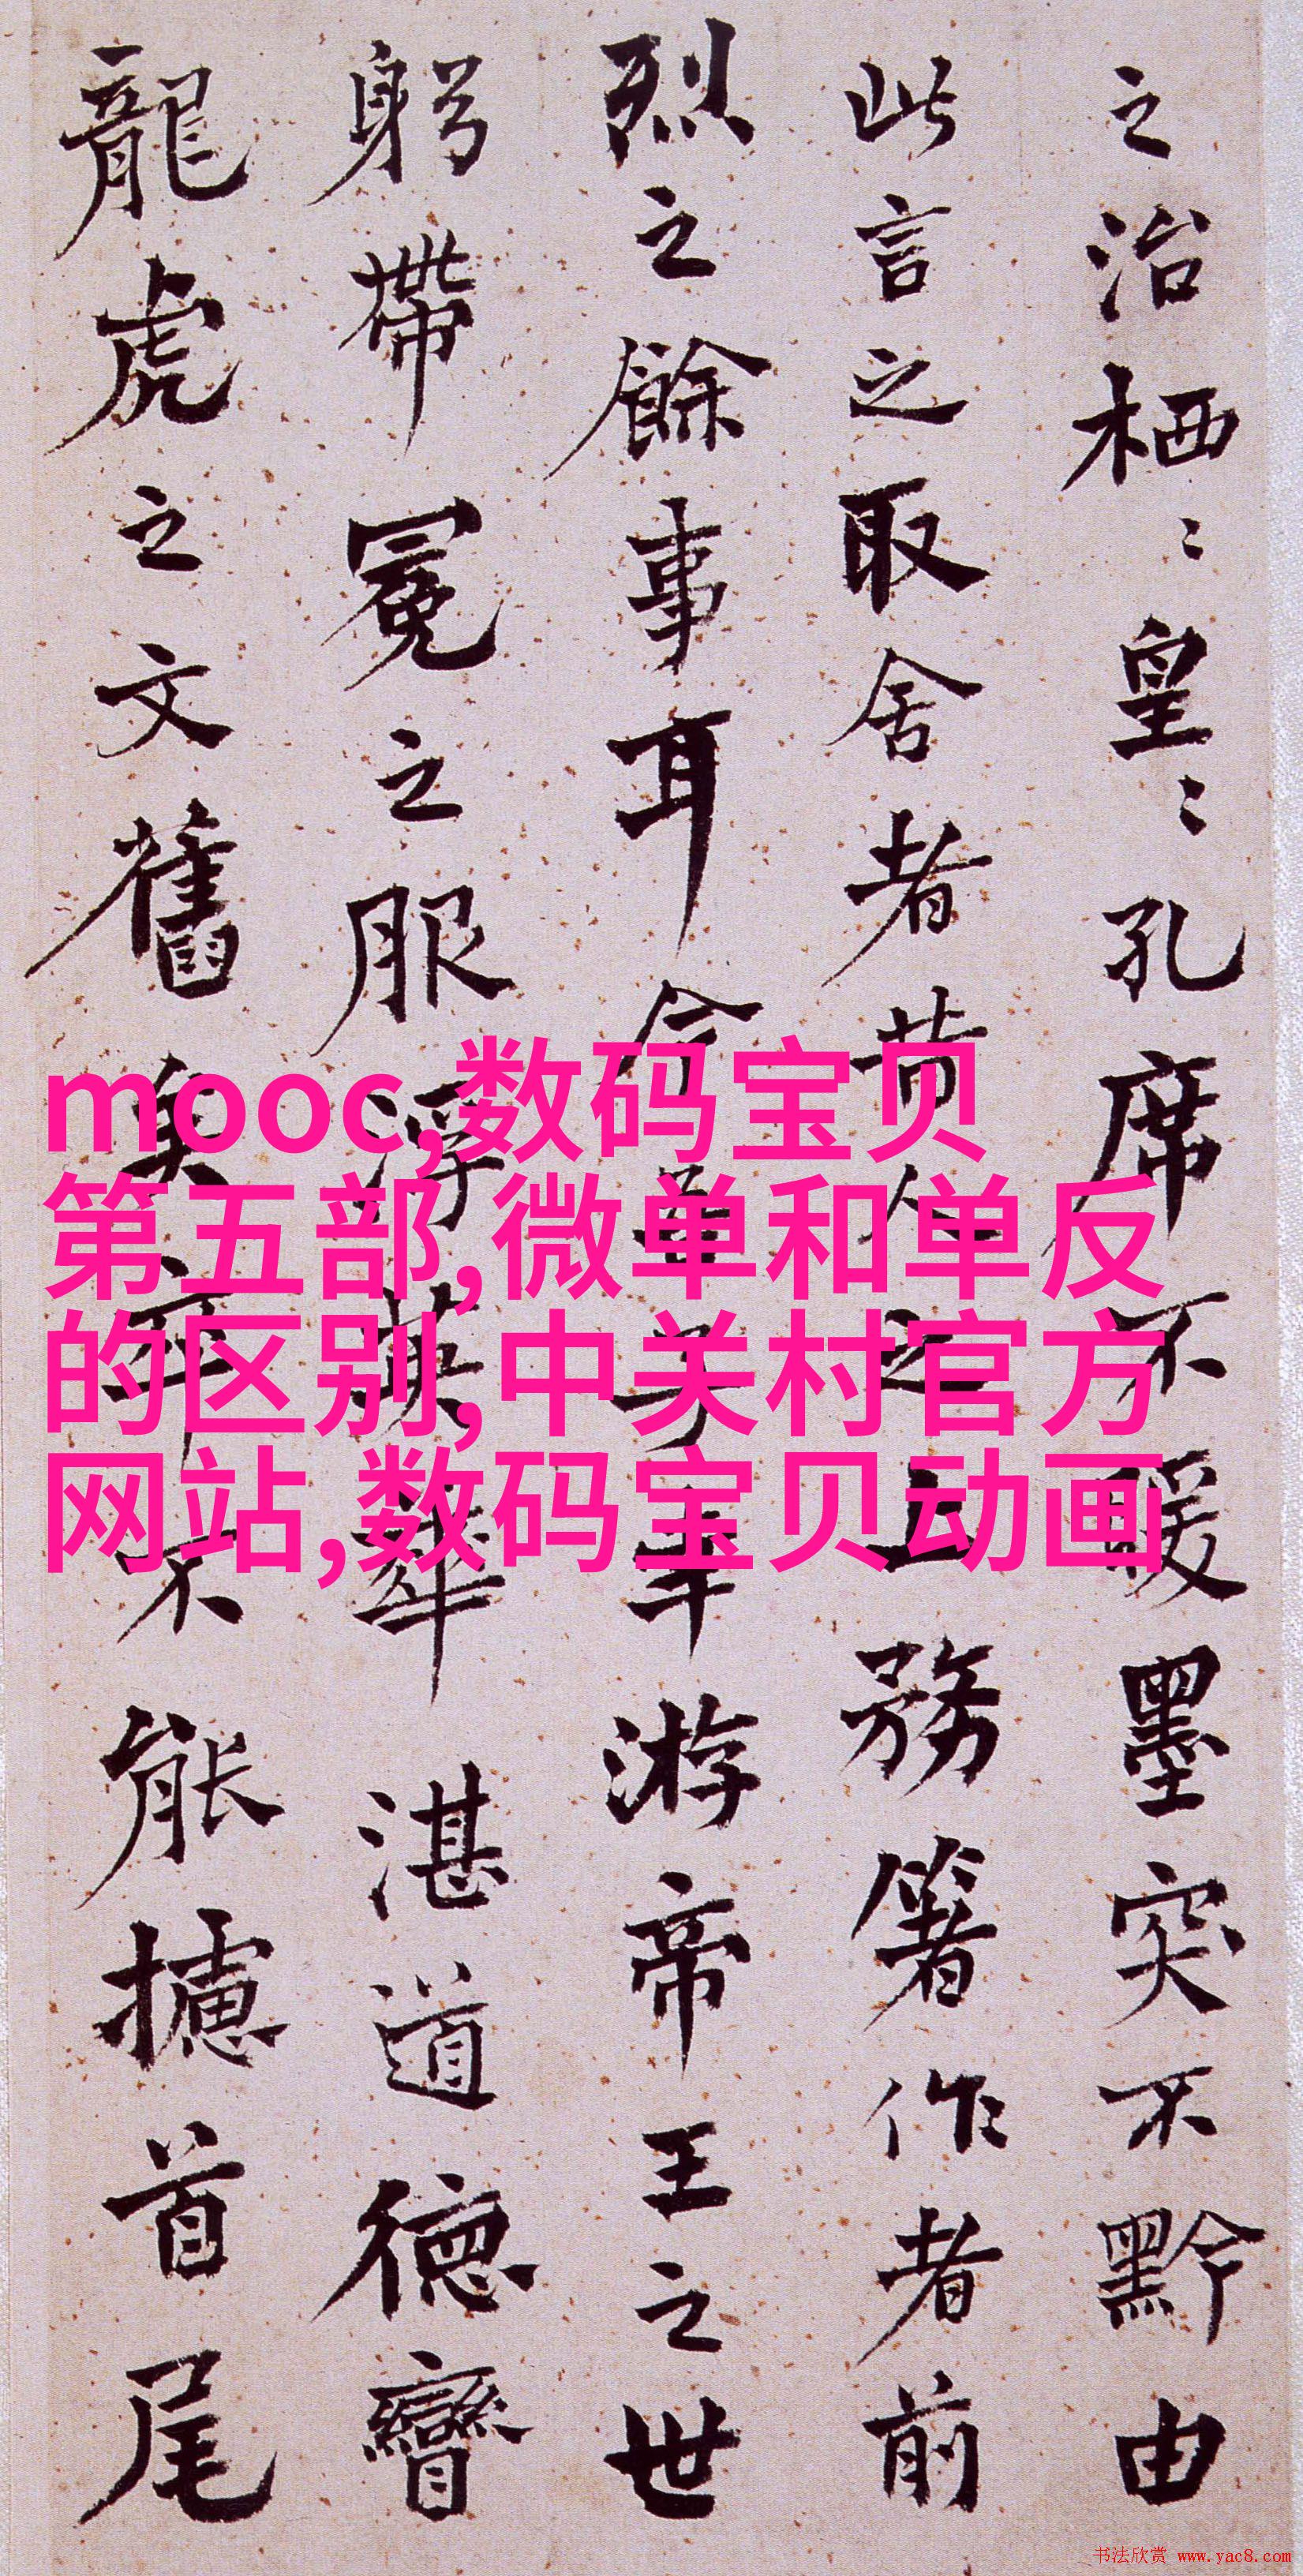 之治栖〻皇〻孔席不暖墨突不黔由
此言之取舍者昔人之上務箸作者前
烈之餘事耳今吾子幸游帝王之世
躬帶冕之服浮英華湛道德矕
龍虎之文舊矣卒不能攄首尾
mooc,数码宝贝
第五部,微单和单反
的区别,中关村官方
网站,数码宝贝动画
书法欣赏 www.yac8.com